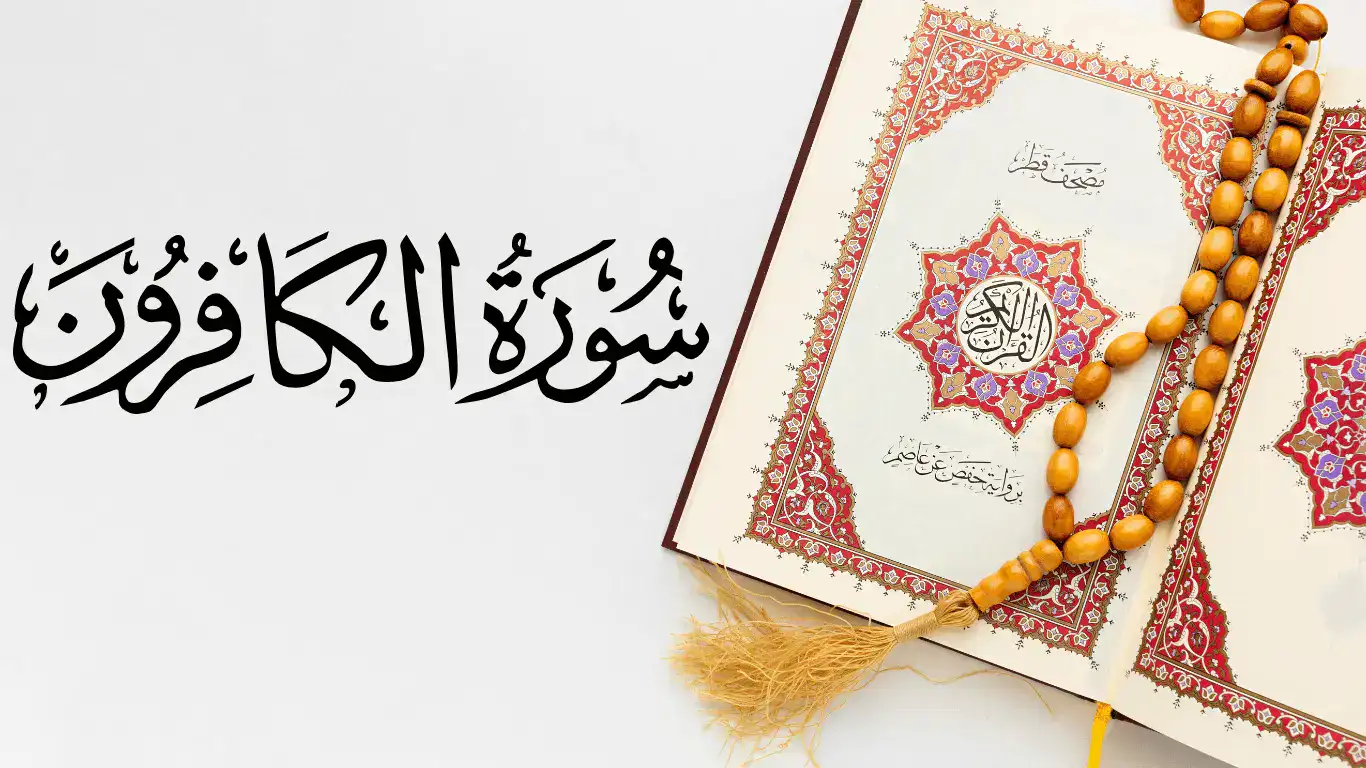 سُورَةُ الكَافِرُونَ
مُصْحَفُ قَطَر
القرآن الكريم
برواية حَفصَ عَنْ عَاصِم